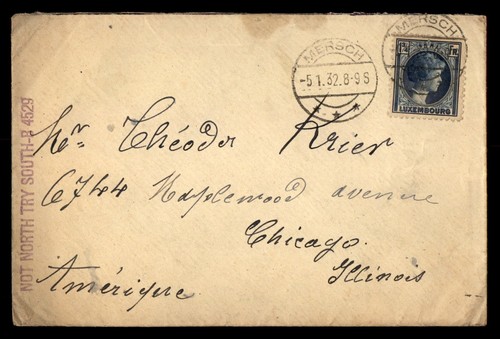 MERSCH
-5.1.32.8-9S
MERSCH
LUXEMBOURG
Mr Théodor Krier
6744 Maplewood avenue
Chicago.
Illinois
Amérique
NOT NORTH TRY SOUTH-B 4529